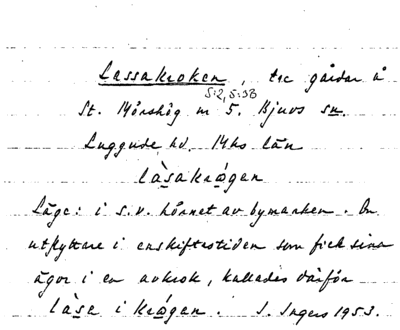 Lassakroken, tre gårdar å
5:2, 5:38
St. Mörshög nr 5. Bjuvs sn.
Luggude hd. Mhs län
làsakrǿgen
Läge: i s.v. hörnet av bymarken. En
utflyttare i enskiftestiden som fick sina
ägor i en avkrok, kallades därför
làsa i krǿgen. I. Ingers 1953.